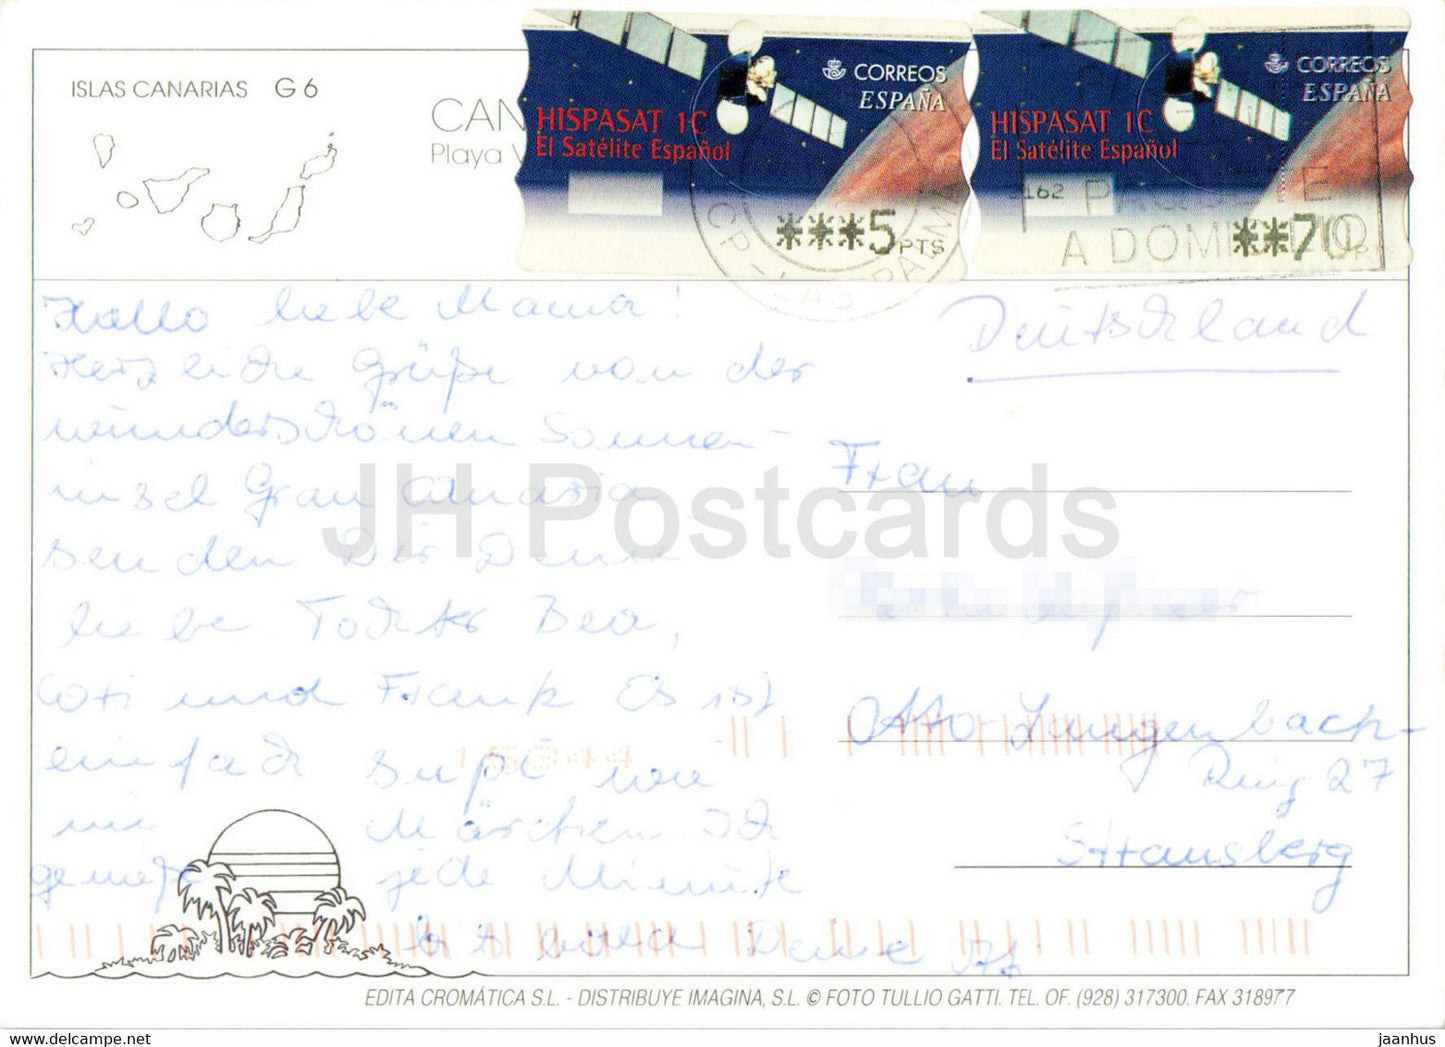 ISLAS CANARIAS G 6
CAN
Playa V
HISPASAT 1C
El Satélite Español
CORREOS
ESPAÑA
***5 PTS
HISPASAT 1C
El Satélite Español
CORREOS
ESPAÑA
162
**70 PTS
A DOMICILIO
Deutschland
Hallo liebe Mama!
Herzliche Grüße von der
wunderschönen Sonnen-
insel Gran Canaria
senden Dir Deine
liebe Tochter Bea,
und Frank Es ist
einfach super wie
im Märchen Ich
genieße jede Minute
bis bald Deine
Frau
Otto Langenbach-
Ring 27
Strausberg
JH Postcards
EDITA CROMÁTICA S.L. - DISTRIBUYE IMAGINA, S.L. © FOTO TULLIO GATTI. TEL. OF. (928) 317300. FAX 318977
jaanhus